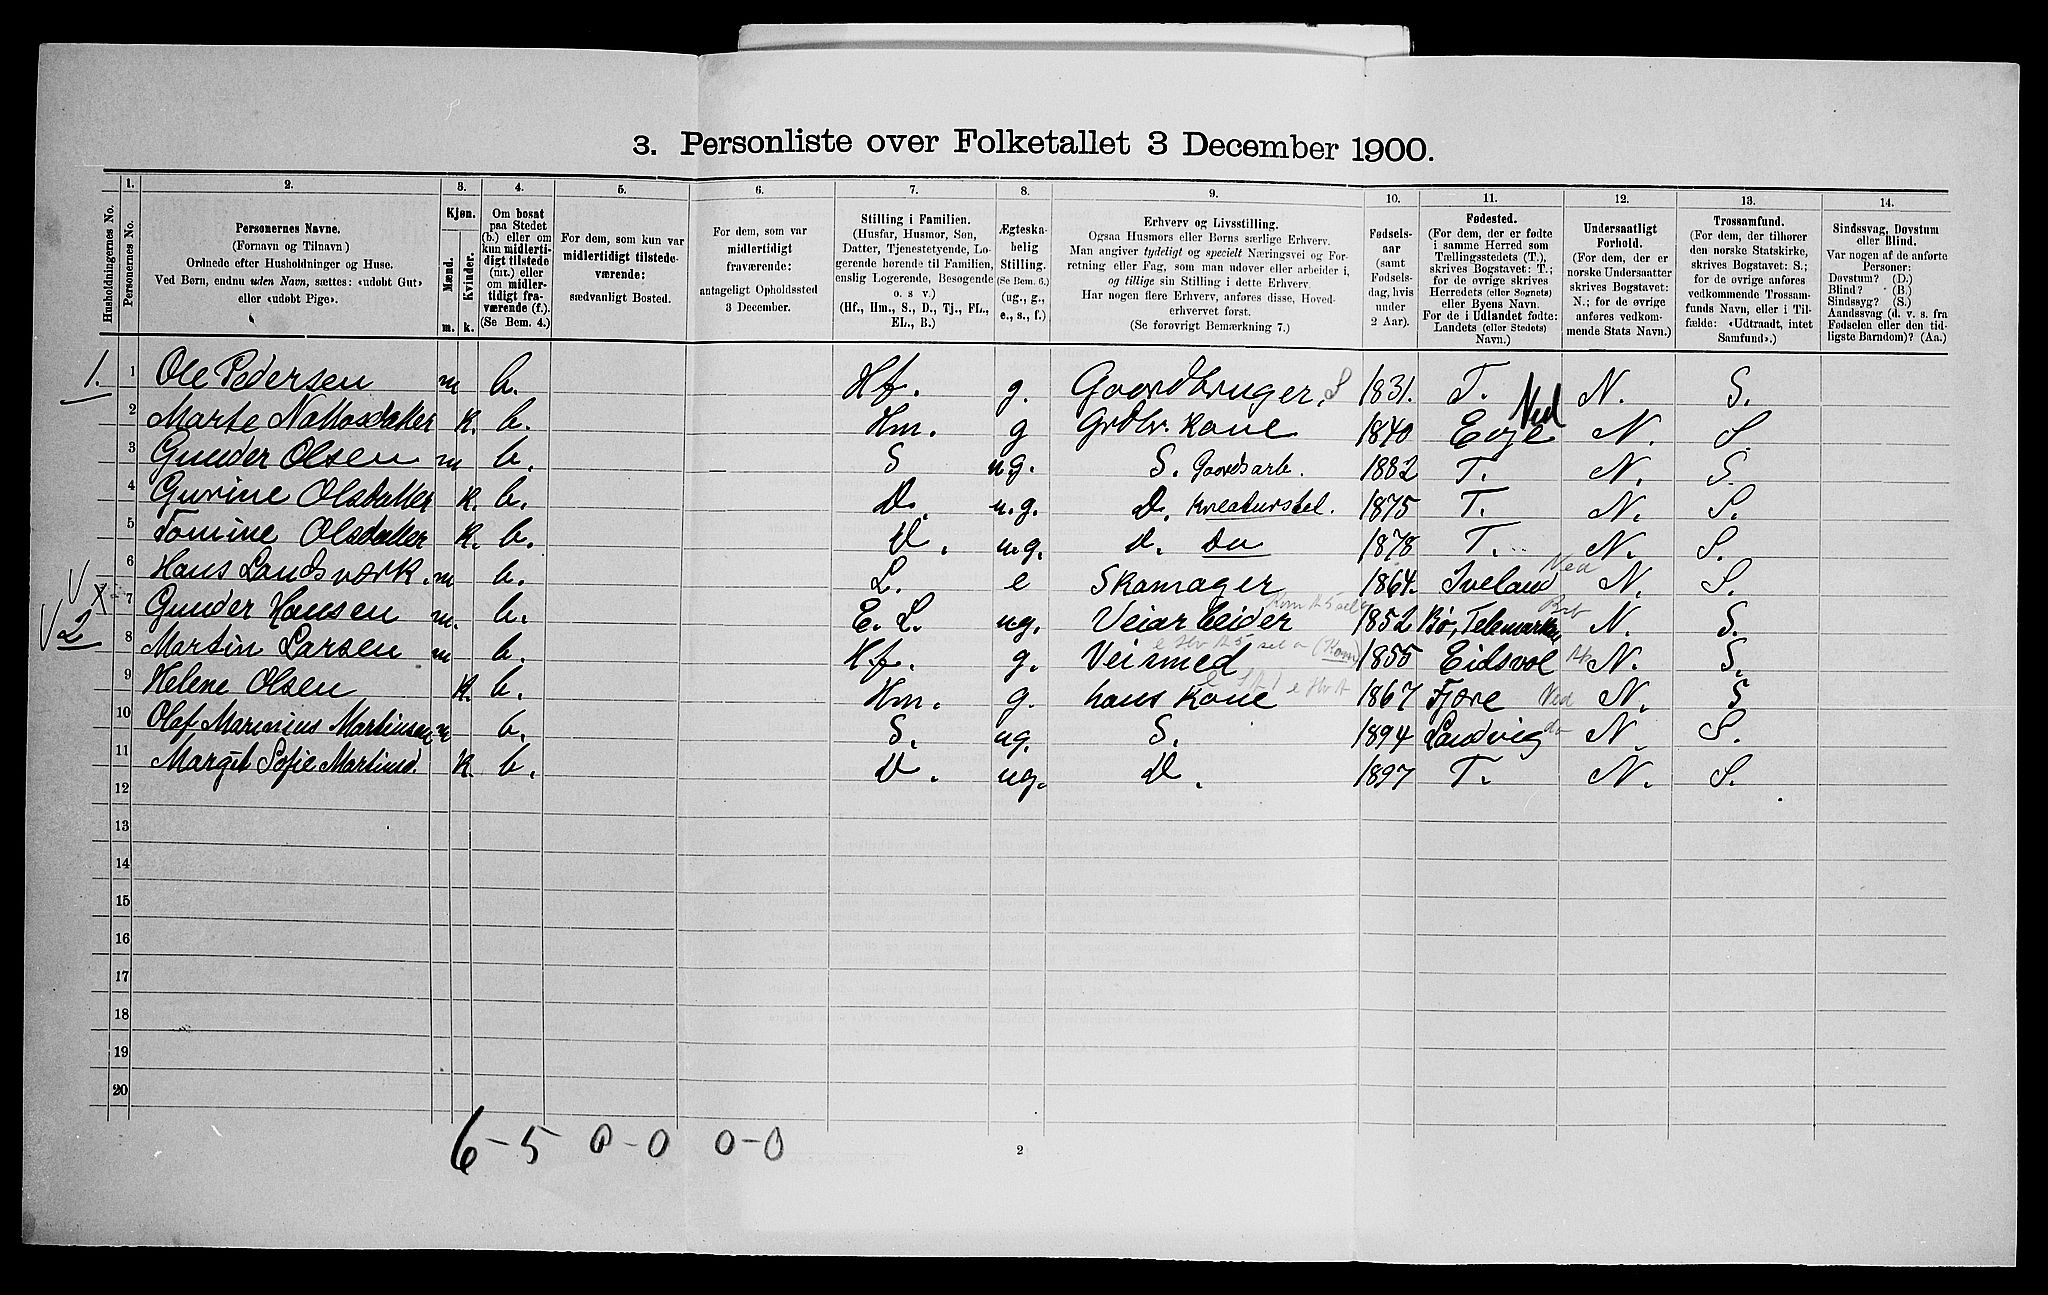 3. Personliste over Folketallet 3 December 1900.
1. 2. 3. 4. 5. 6. 7. 8. 9. 10. 11. 12. 13. 14.
Husholdningernes No.
Personernes No.
Personernes Navne.
(Fornavn og Tilnavn)
Ordnede efter Husholdninger og Huse.
Ved Børn, endnu uden Navn, sættes: «udøbt Gut»
eller «udøbt Pige».
Kjøn.
Mænd. Kvinder.
m. k.
Om bosat
paa Stedet
(b.) eller om
kun midlerti-
digt tilstede
(mt.) eller
om midler-
tidigt fra-
værende (f.).
(Se Bem. 4.)
For dem, som kun var
midlertidigt tilstede-
værende:
sædvanligt Bosted.
For dem, som var
midlertidigt
fraværende:
antageligt Opholdssted
3 December.
Stilling i Familien.
(Husfar, Husmor, Søn,
Datter, Tjenestetyende, Lo-
gerende hørende til Familien,
enslig Logerende, Besøgende
o. s. v.)
(Hf., Hm., S., D., Tj., FL.,
EL., B.)
Ægteska-
belig
Stilling.
(Se Bem. 6.)
(ug., g.,
e., s., f.)
Erhverv og Livsstilling.
Ogsaa Husmors eller Børns særlige Erhverv.
Man angiver tydeligt og specielt Næringsvei og For-
retning eller Fag, som man udøver eller arbeider i,
og tillige sin Stilling i dette Erhverv.
Har nogen flere Erhverv, anføres disse, Hoved-
erhvervet først.
(Se forøvrigt Bemærkning 7.)
Fødsels-
aar
(samt
Fødsels-
dag, hvis
under
2 Aar).
Fødested.
(For dem, der er fødte
i samme Herred som
Tællingsstedets (T.),
skrives Bogstavet: T.;
for de øvrige skrives
Herredets (eller Sognets)
eller Byens Navn.
For de i Udlandet fødte:
Landets (eller Stedets)
Navn.)
Undersaatligt
Forhold.
(For dem, der er
norske Undersaatter
skrives Bogstavet:
N.; for de øvrige
anføres vedkom-
mende Stats Navn.)
Trossamfund.
(For dem, der tilhører
den norske Statskirke,
skrives Bogstavet: S.;
for de øvrige anføres
vedkommende Trossam-
funds Navn, eller i Til-
fælde: «Udtraadt, intet
Samfund».)
Sindssvag, Døvstum
eller Blind.
Var nogen af de anførte
Personer:
Døvstum? (D.)
Blind? (B.)
Sindssyg? (S.)
Aandssvag (d. v. s. fra
Fødselen eller den tid-
ligste Barndom)? (Aa.)
1. 1 Ole Pedersen m b. Hf. g. Gaardbruger S 1831. T. N. S.
2 Marte K. b. Hm. g Grdbr. Kone 1840 Evje Ned N. S.
3 Gunder Olsen m b. S ug. S. Gaardsarb. 1882 T. N. S.
4 Gurine Olsdatter K. b. D. u.g. D. Kreaturstel. 1875 T. N. S.
5 Tomine Olsdatter K. b. D. u.g. D. Do 1878 T. N. S.
6 Hans Landsværk. m b. L. e Skomager 1864. Iveland Ned N. S.
7 Gunder Hansen m. b. E. L. ug. Veiarbeider 1852 Bø, Telemarken N. S.
2 8 Martin Larsen m b. Hf. g. Veirmed 1855 Eidsvol N. S.
9 Helene Olsen K. b. Hm. g. hans Kone 1867 Fjære Ned N. S
10 Olaf Marinius Martinsen m b. S. ug. S. 1894 Landvig do N. S.
11 Margit Sofie Martinsd. K. b. D. ug. D. 1897 T. N. S.
12
13
14
15
16
17
18
19
20
6-5 0-0 0-0
2